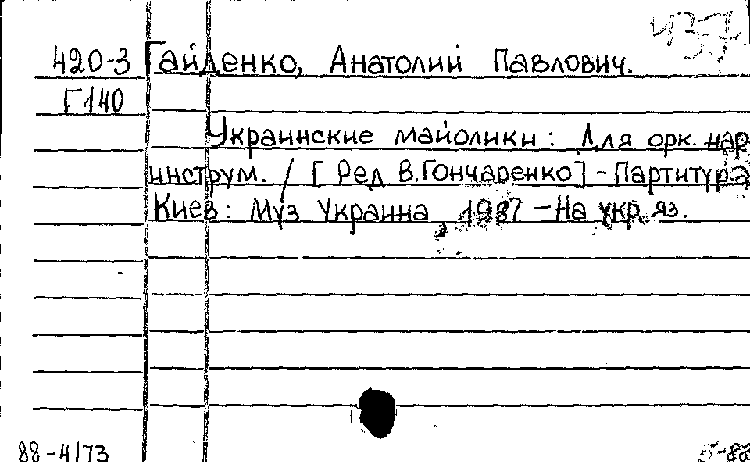 437
420-3 Гайденко, Анатолий Павлович.
Г140
Украинские майолики: Для орк. нар
инструм. / [Ред В.Гончаренко] - Партитура
Киев: Муз Украина, 1987 - На укр. яз.
88-4173